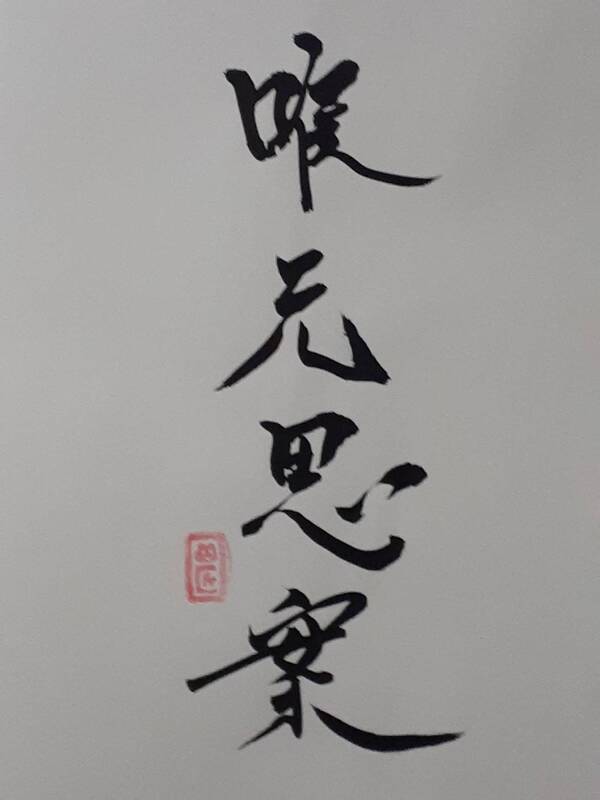 喉元思案